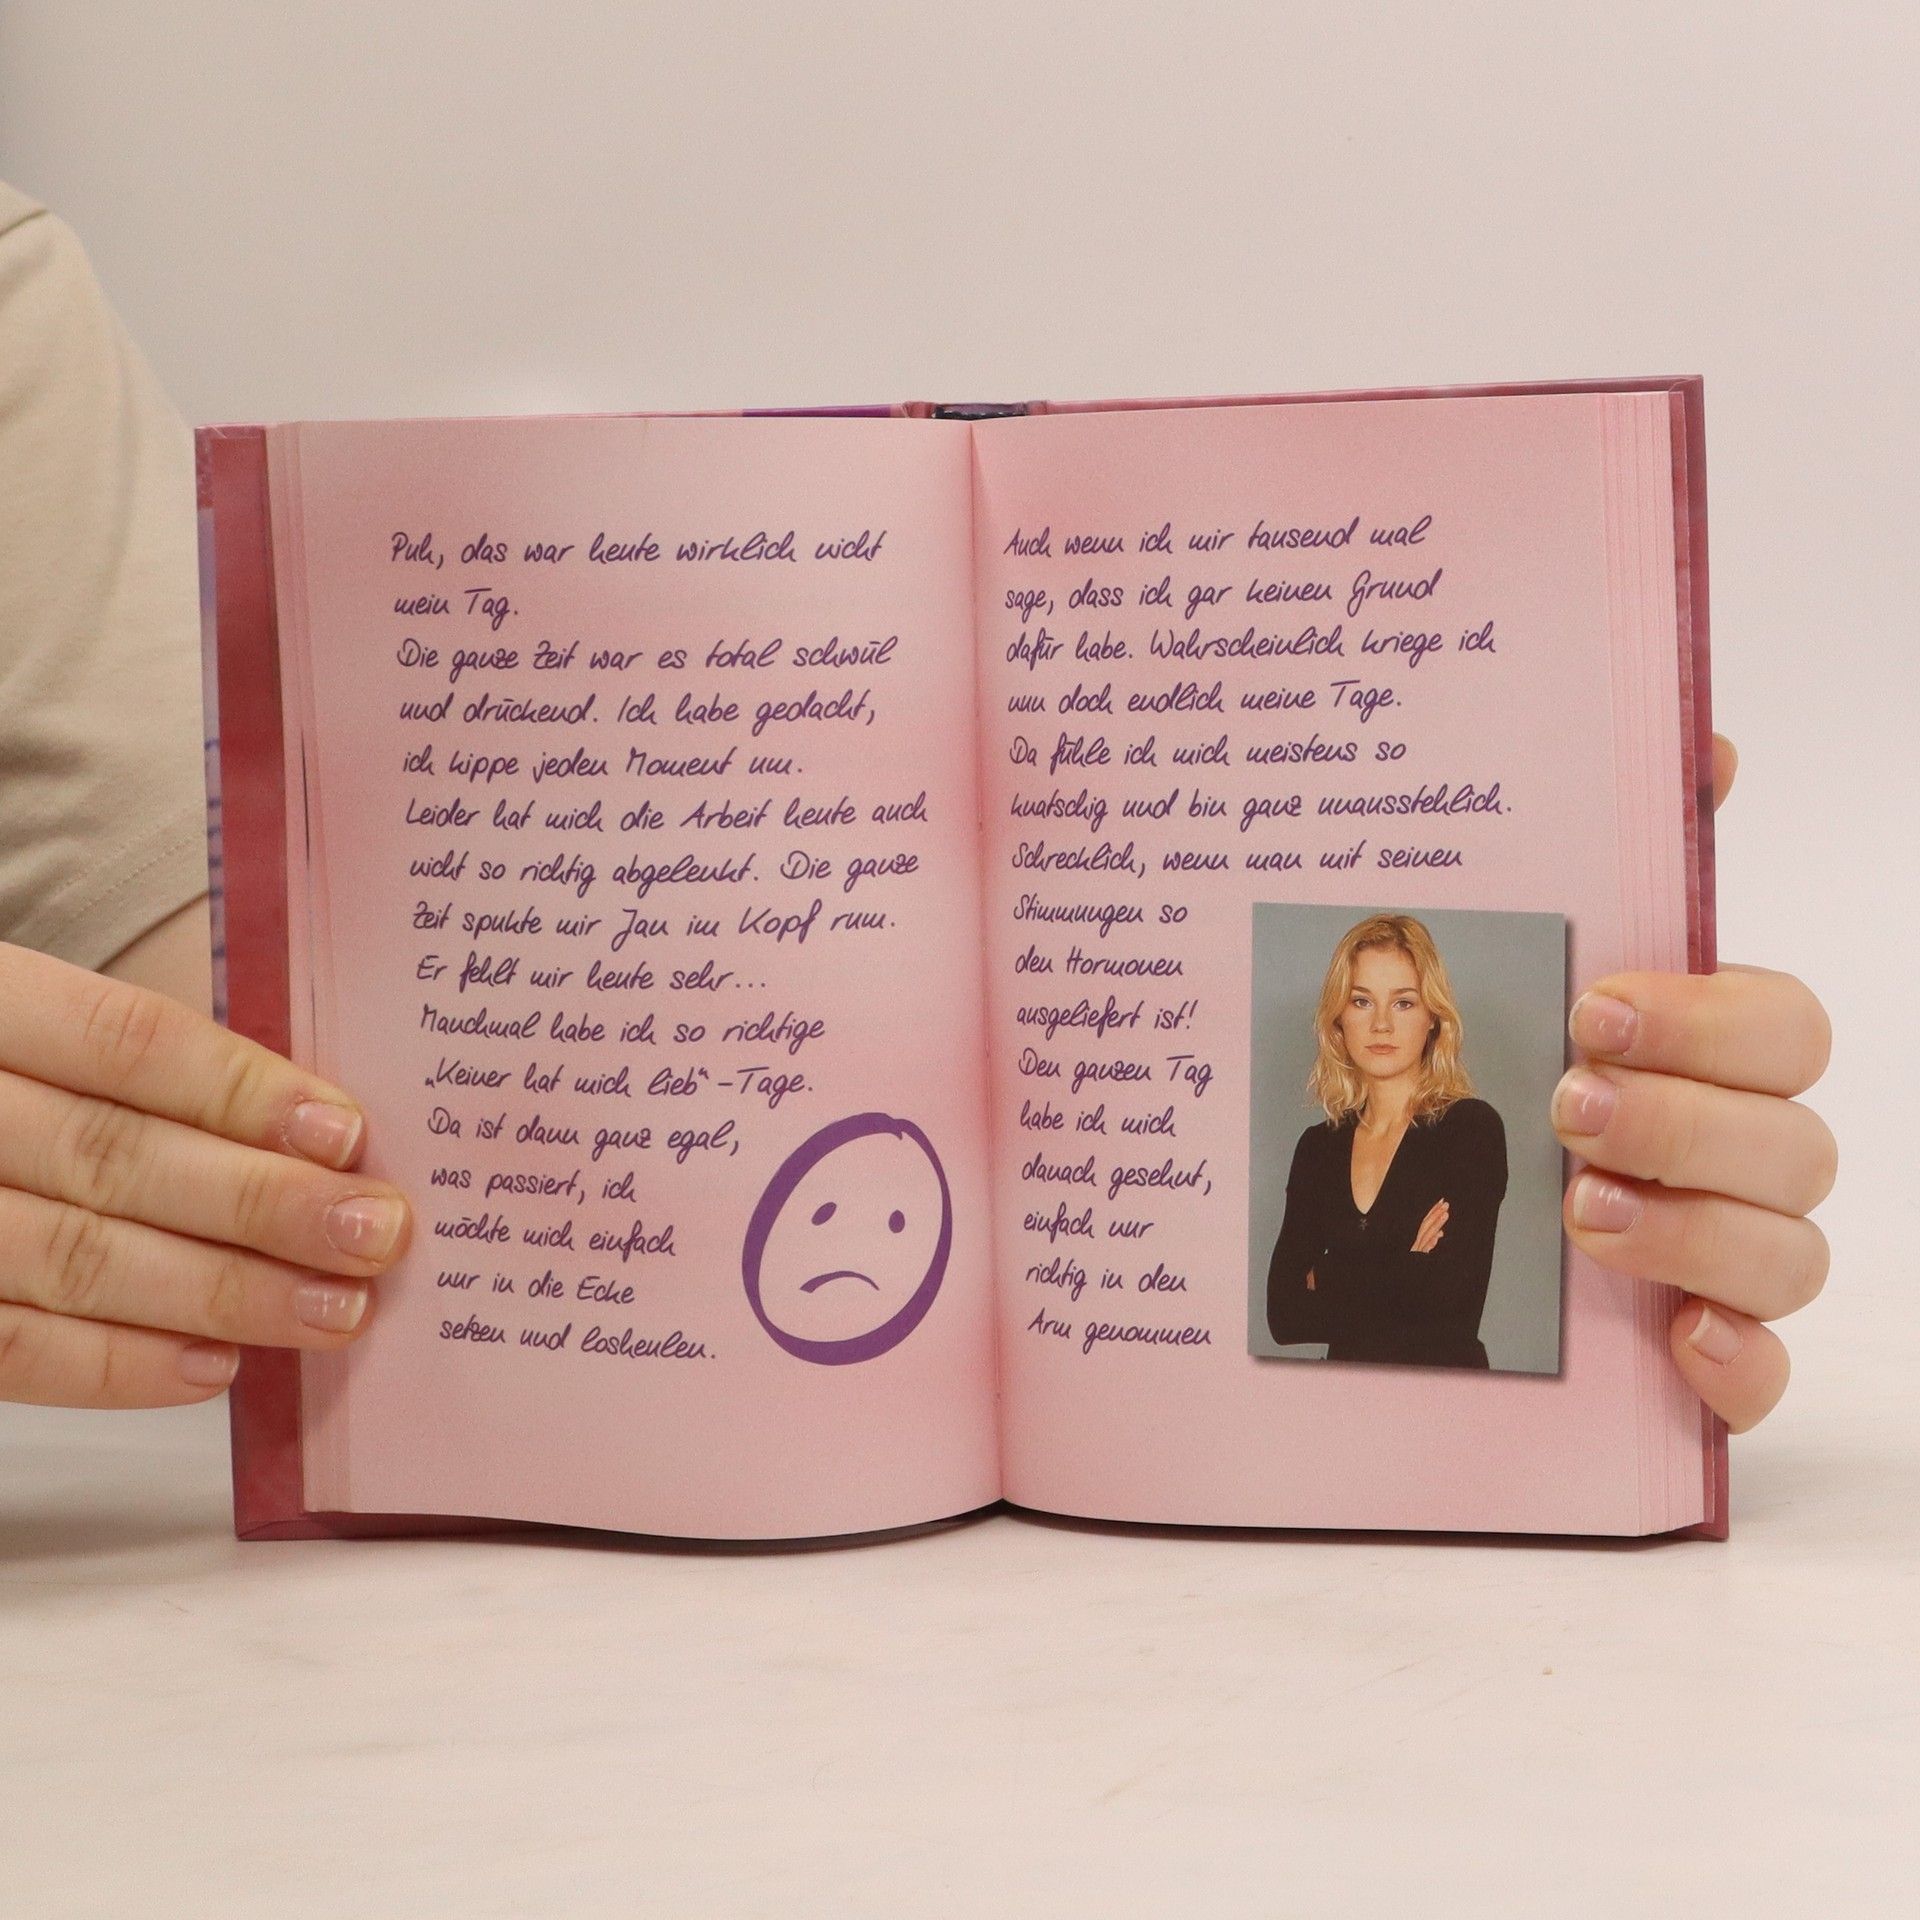 Puh, das war heute wirklich nicht
mein Tag.
Die ganze Zeit war es total schwül
und drückend. Ich habe gedacht,
ich kippe jeden Moment um.
Leider hat mich die Arbeit heute auch
nicht so richtig abgelenkt. Die ganze
Zeit spukte mir Jan im Kopf rum.
Er fehlt mir heute sehr...
Manchmal habe ich so richtige
„Keiner hat mich lieb“-Tage.
Da ist dann ganz egal,
was passiert, ich
möchte mich einfach
nur in die Ecke
setzen und losheulen.
Auch wenn ich mir tausend mal
sage, dass ich gar keinen Grund
dafür habe. Wahrscheinlich kriege ich
nun doch endlich meine Tage.
Da fühle ich mich meistens so
knatschig und bin ganz unausstehlich.
Schrecklich, wenn man mit seinen
Stimmungen so
den Hormonen
ausgeliefert ist!
Den ganzen Tag
habe ich mich
danach gesehnt,
einfach nur
richtig in den
Arm genommen